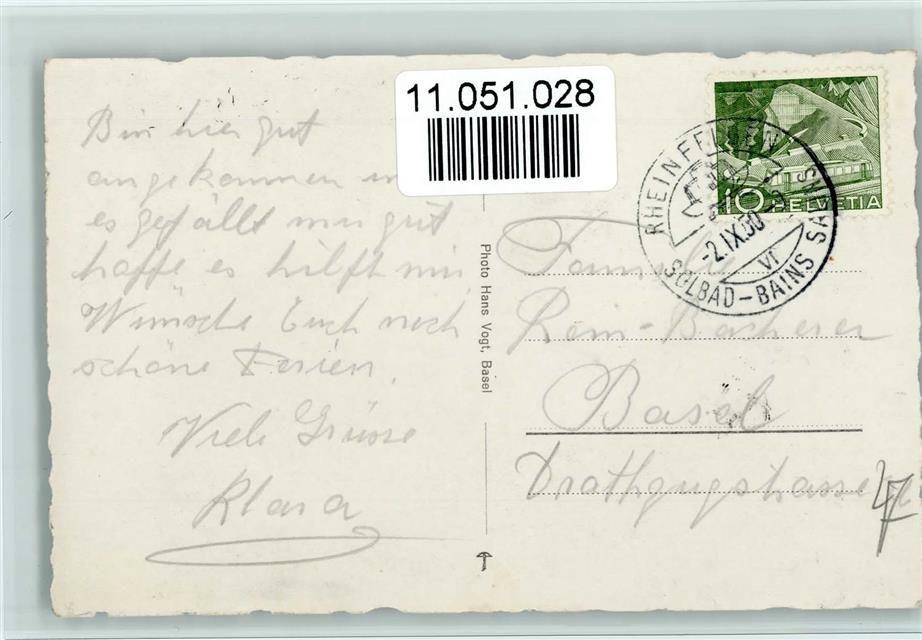 11.051.028
Bin hier gut
angekommen
es gefällt mir gut
hoffe es hilft mir
Wünsche Euch noch
schöne Ferien.
Viele Grüsse
Klara
Photo Hans Vogt, Basel
10 HELVETIA
RHEINFELDEN
-2.IX.50
VI
SOLBAD-BAINS SALINS
Familie
Rem-Bacherer
Basel
47